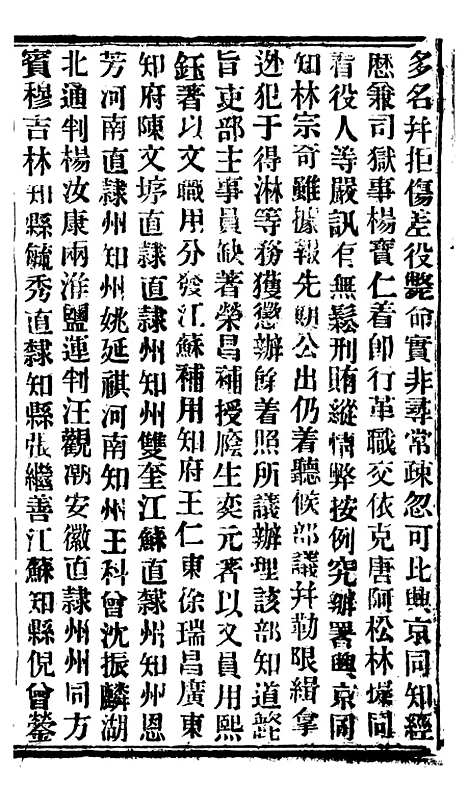 多名幷拒傷差役斃命實非尋常疎忽可比興京同知經
歷兼司獄事楊寶仁着卽行革職交依克唐阿松林提同
看役人等嚴訊有無鬆刑賄縱情弊按例究辦署興京同
知林宗奇雖據報先期公出仍着聽候部議幷勒限緝拿
逃犯于得淋等務獲懲辦餘着照所議辦理該部知道欽此
旨吏部主事員缺著榮昌補授廕生奕元著以文員用熙
鈺著以文職用分發江蘇補用知府王仁東徐瑞昌廣東
知府陳文㙞直隸直隸州知州雙奎江蘇直隸州知州恩
芳河南直隸州知州姚延祺河南知州王科曾沈振麟湖
北通判楊汝康兩淮鹽運判汪觀潮安徽直隸州州同方
賓穆吉林知縣毓秀直隸知縣張繼善江蘇知縣倪曾鎣